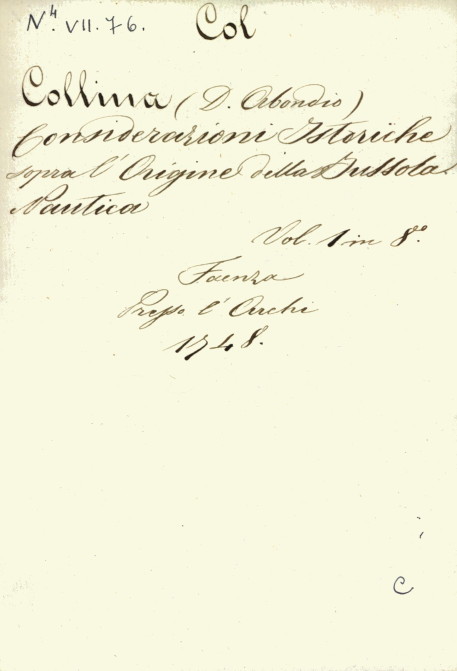 N.4 VII.76.
Col
Collina (D. Abondio)
Considerazioni Istoriche
sopra l'Origine della Bussola
Nautica
Vol. 1 in 8°.
Faenza
Presso l'Archi
1748.
C